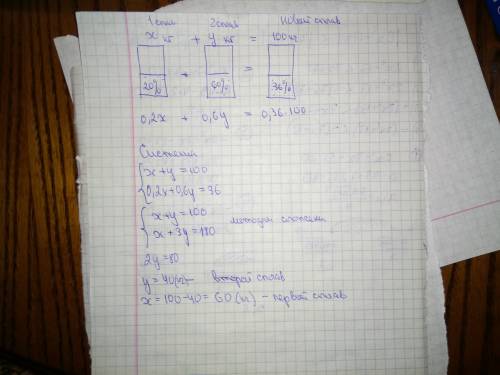 1 сплав 2 сплав новый сплав
x кг + y кг = 100 кг
20% + 60% = 36%
0,2x + 0,6y = 0,36·100
Система
x+y=100
0,2x+0,6y=36
x+y=100
x+3y=180
методом сложения
2y=80
y=40кг – второй сплав
x=100-40=60(кг) – первый сплав